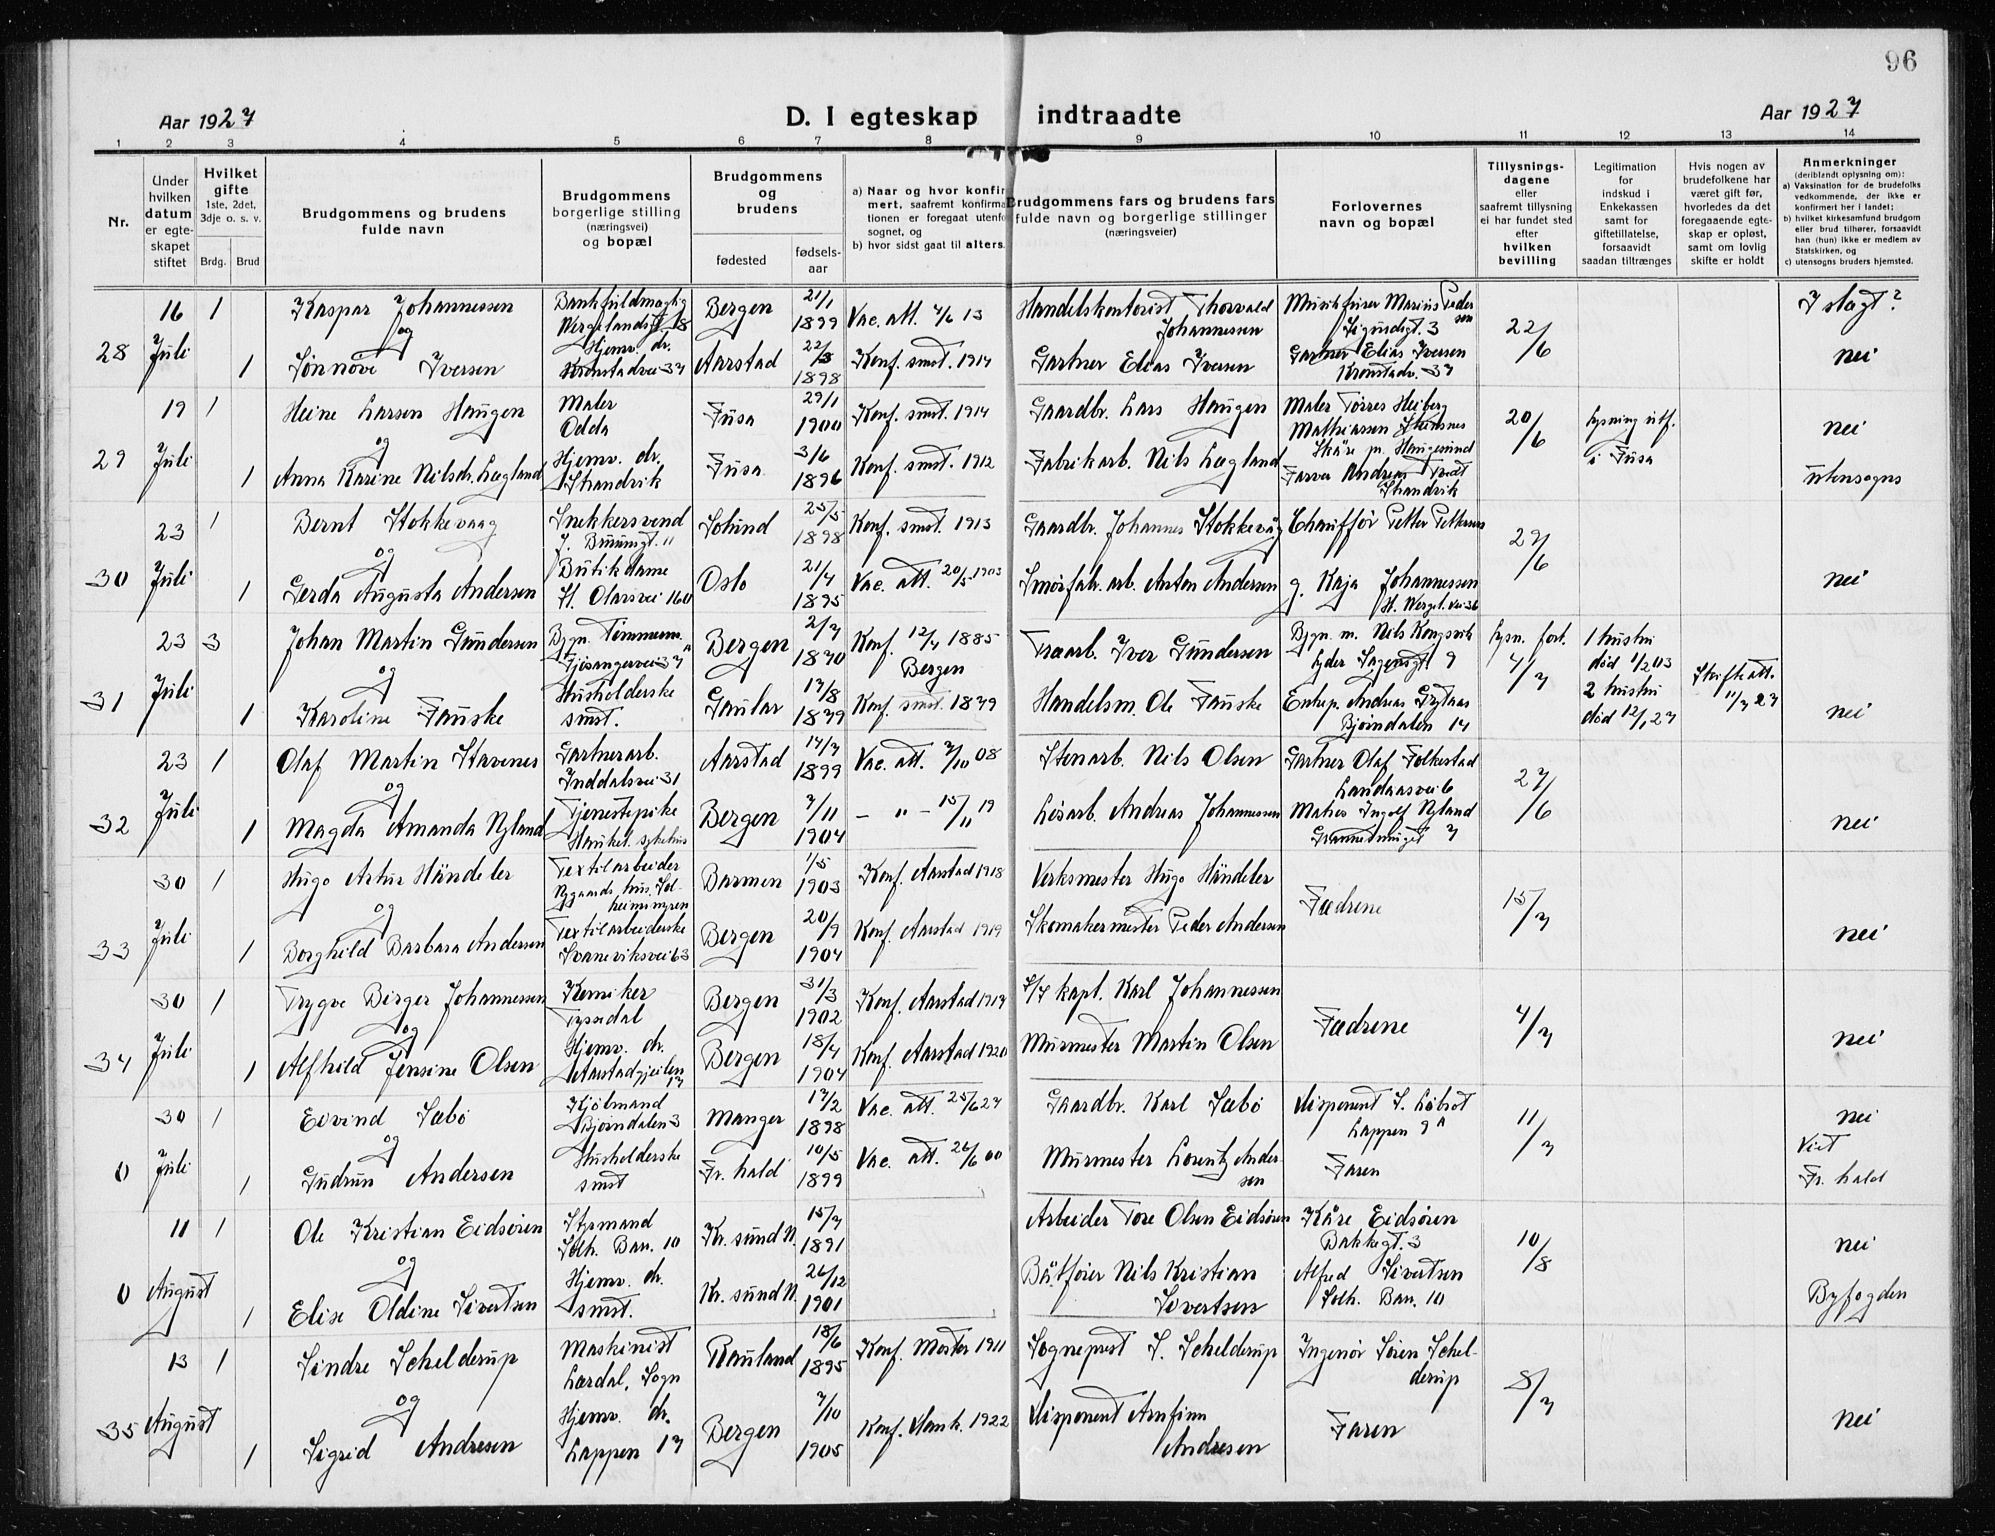 96
Aar 1927
D. I egteskap indtraadte
Aar 1927
1 2 3 4 5 6 7 8 9 10 11 12 13 14
Nr.
Under hvilken datum er egteskapet stiftet
Hvilket gifte
1ste, 2det, 3dje o. s. v.
Brdg. Brud
Brudgommens og brudens fulde navn
Brudgommens borgerlige stilling (næringsvei) og bopæl
Brudgommens og brudens
fødested
fødsels-aar
a) Naar og hvor konfirmert, saafremt konfirmationen er foregaat utenfor sognet, og
b) hvor sidst gaat til alters.
Brudgommens fars og brudens fars fulde navn og borgerlige stillinger (næringsveier)
Forlovernes navn og bopæl
Tillysnings-dagene eller saafremt tillysning ei har fundet sted efter hvilken bevilling
Legitimation for indskud i Enkekassen samt for giftetillatelse, forsaavidt saadan tiltrænges
Hvis nogen av brudefolkene har været gift før, hvorledes da det foregaaende egteskap er opløst, samt om lovlig skifte er holdt
Anmerkninger
(deriblandt oplysning om):
a) Vaksination for de brudefolks vedkommende, der ikke er konfirmert her i landet;
b) hvilket kirkesamfund brudgom eller brud tilhører, forsaavidt han (hun) ikke er medlem av Statskirken, og
c) utensogns bruders hjemsted.
28 16 Juli 1 Kaspar Johannessen Bankfuldmægtig Wergelandsgt 18 Bergen 21/1 1899 Vac. att. 4/6 13 Handelskontorist Thorvald Johannessen Musikfører Marius Pedersen Sigurdsgt. 3 22/6 I slagt?
og
1 Sønnøve Iversen Hjemv. dr. Kronstadvei 37 Aarstad 22/3 1898 Konf. smst. 1914 Gartner Elias Iversen Gartner Elias Iversen Kronstadv. 37 nei
29 19 Juli 1 Heine Larsen Haugen Maler Odda Fusa 29/1 1900 Konf. smst. 1914 Gaardbr. Lars Haugen Maler Tørres Heiberg Mathiassen Skåre pr. Haugesund 20/6 lysning utf. i Fusa nei
og
1 Anna Karine Nilsdr. Lægland Hjemv. dr. Strandvik Fusa 3/6 1896 Konf. smst. 1912 Fabrikarb. Nils Lægland Farver Andreas Tvedt Strandvik utensogns
30 23 Juli 1 Bernt Stokkevaag Snekkersvend J. Bruunsgt. 11 Solund 25/5 1898 Konf. smst. 1913 Gaardbr. Johannes Stokkevåg Chauffør Petter Pettersen 29/6
og
1 Gerda Augusta Andersen Butikdame St. Olavsvei 16 Oslo 21/4 1895 Vac. att. 20/5 1903 Smørfabr. arb. Anton Andersen g. Kaja Johannessen H. Wergel. vei 36 nei
31 23 Juli 3 Johan Martin Gundersen Bygn. Tømmerm. Fjøsangervei 37 Bergen 2/7 1870 Konf. 12/4 1885 Bergen Træarb. Iver Gundersen Bygn. m. Nils Kongsvik Lyder Sagensgt 9 lysn. fort. 4/7 1 hustru død 1/2 03 Skifteatt. 11/7 27
og
1 Karoline Fauske Husholderske smst. Gaular 17/8 1879 Konf. smst. 1879 Handelsm. Ole Fauske Entrep. Andreas Gytaas Bjørndalen 14 2 hustru død 12/1 27 nei
32 23 Juli 1 Olaf Martin Stavenes Gartnerarb. Inndalsvei 31 Aarstad 14/7 1899 Vac. att. 7/10 08 Stenarb. Nils Olsen Gartner Olaf Folkestad Landaasvei 6 27/6
og
1 Magda Amanda Nyland Tjenestepike Haukel. sykehus Bergen 7/11 1904 - " - 15/11 19 Løsarb. Andreas Johannessen Matros Ingolf Nyland 7 nei
33 30 Juli 1 Hugo Artur Händeler Textilarbeider Nygaards hus. Solheimsmyren Barmen 1/5 1903 Konf. Aarstad 1918 Verksmester Hugo Händeler Fædrene 15/7
og
1 Borghild Barbara Andersen Textilarbeiderske Svaneviksvei 63 Bergen 20/9 1904 Konf. Aarstad 1919 Skomakermester Peder Andersen nei
34 30 Juli 1 Trygve Birger Johannessen Kemiker Tyssedal Bergen 31/3 1902 Konf. Aarstad 1917 S/S kapt. Karl Johannessen Fædrene 4/7
og
1 Alfhild Jensine Olsen Hjemv. dr. Aarstadgjeilen 17 Bergen 18/4 1904 Konf. Aarstad 1920 Murmester Martin Olsen nei
0 30 Juli 1 Eivind Sæbö Bjørndalen 3 Manger 17/2 1898 Vac. att. 25/6 27 Gaardbr. Karl Sæbö Disponent S. Lobrot Lappen 9A 11/7 nei
og
1 Gudrun Andersen Husholderske smst Fr. hald 10/5 1899 Vac. att. 26/6 00 Murmester Lorentz Andersen Faren Viet Fr. hald
0 11 August 1 Ole Kristian Eidsören Styrmand Solh. Bau. 10 Kr. sund N. 15/7 1891 Arbeider Tore Olsen Eidsören Kåre Eidsören Bakkegt. 3 10/8 nei
og
1 Elise Oldine Sivertsen Hjemv. dr. smst. Kr. sund N. 26/12 1901 Båtfører Nils Kristian Sivertsen Alfred Sivertsen Solh. Bau. 10 Byfogden
35 13 August 1 Sindre Schelderup Maskinist Lærdal, Sogn Rauland 18/6 1895 Konf. Moster 1911 Sogneprest S. Schelderup Ingeniør Sören Schelderup 8/7
og
1 Sigrid Andresen Hjemv. dr. Lappen 17 Bergen 7/10 1905 Konf. Domk. 1922 Disponent Arnfinn Andresen Faren nei